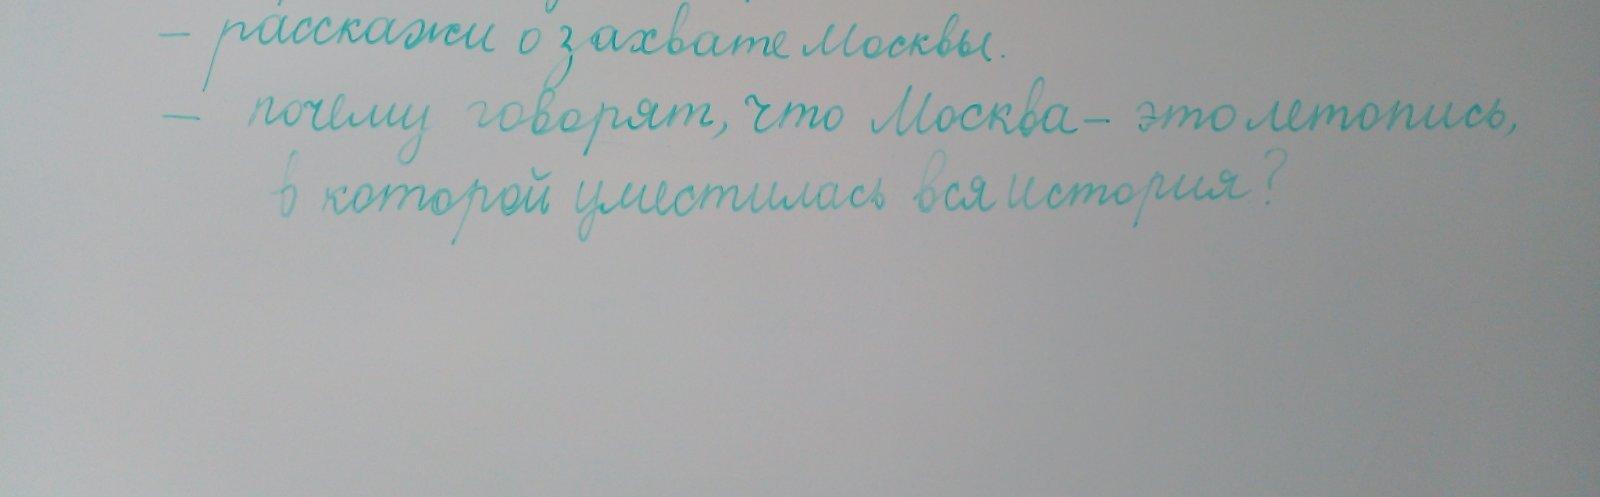 – расскажи о захвате Москвы.
– почему говорят, что Москва – это летопись,
в которой уместилась вся история?